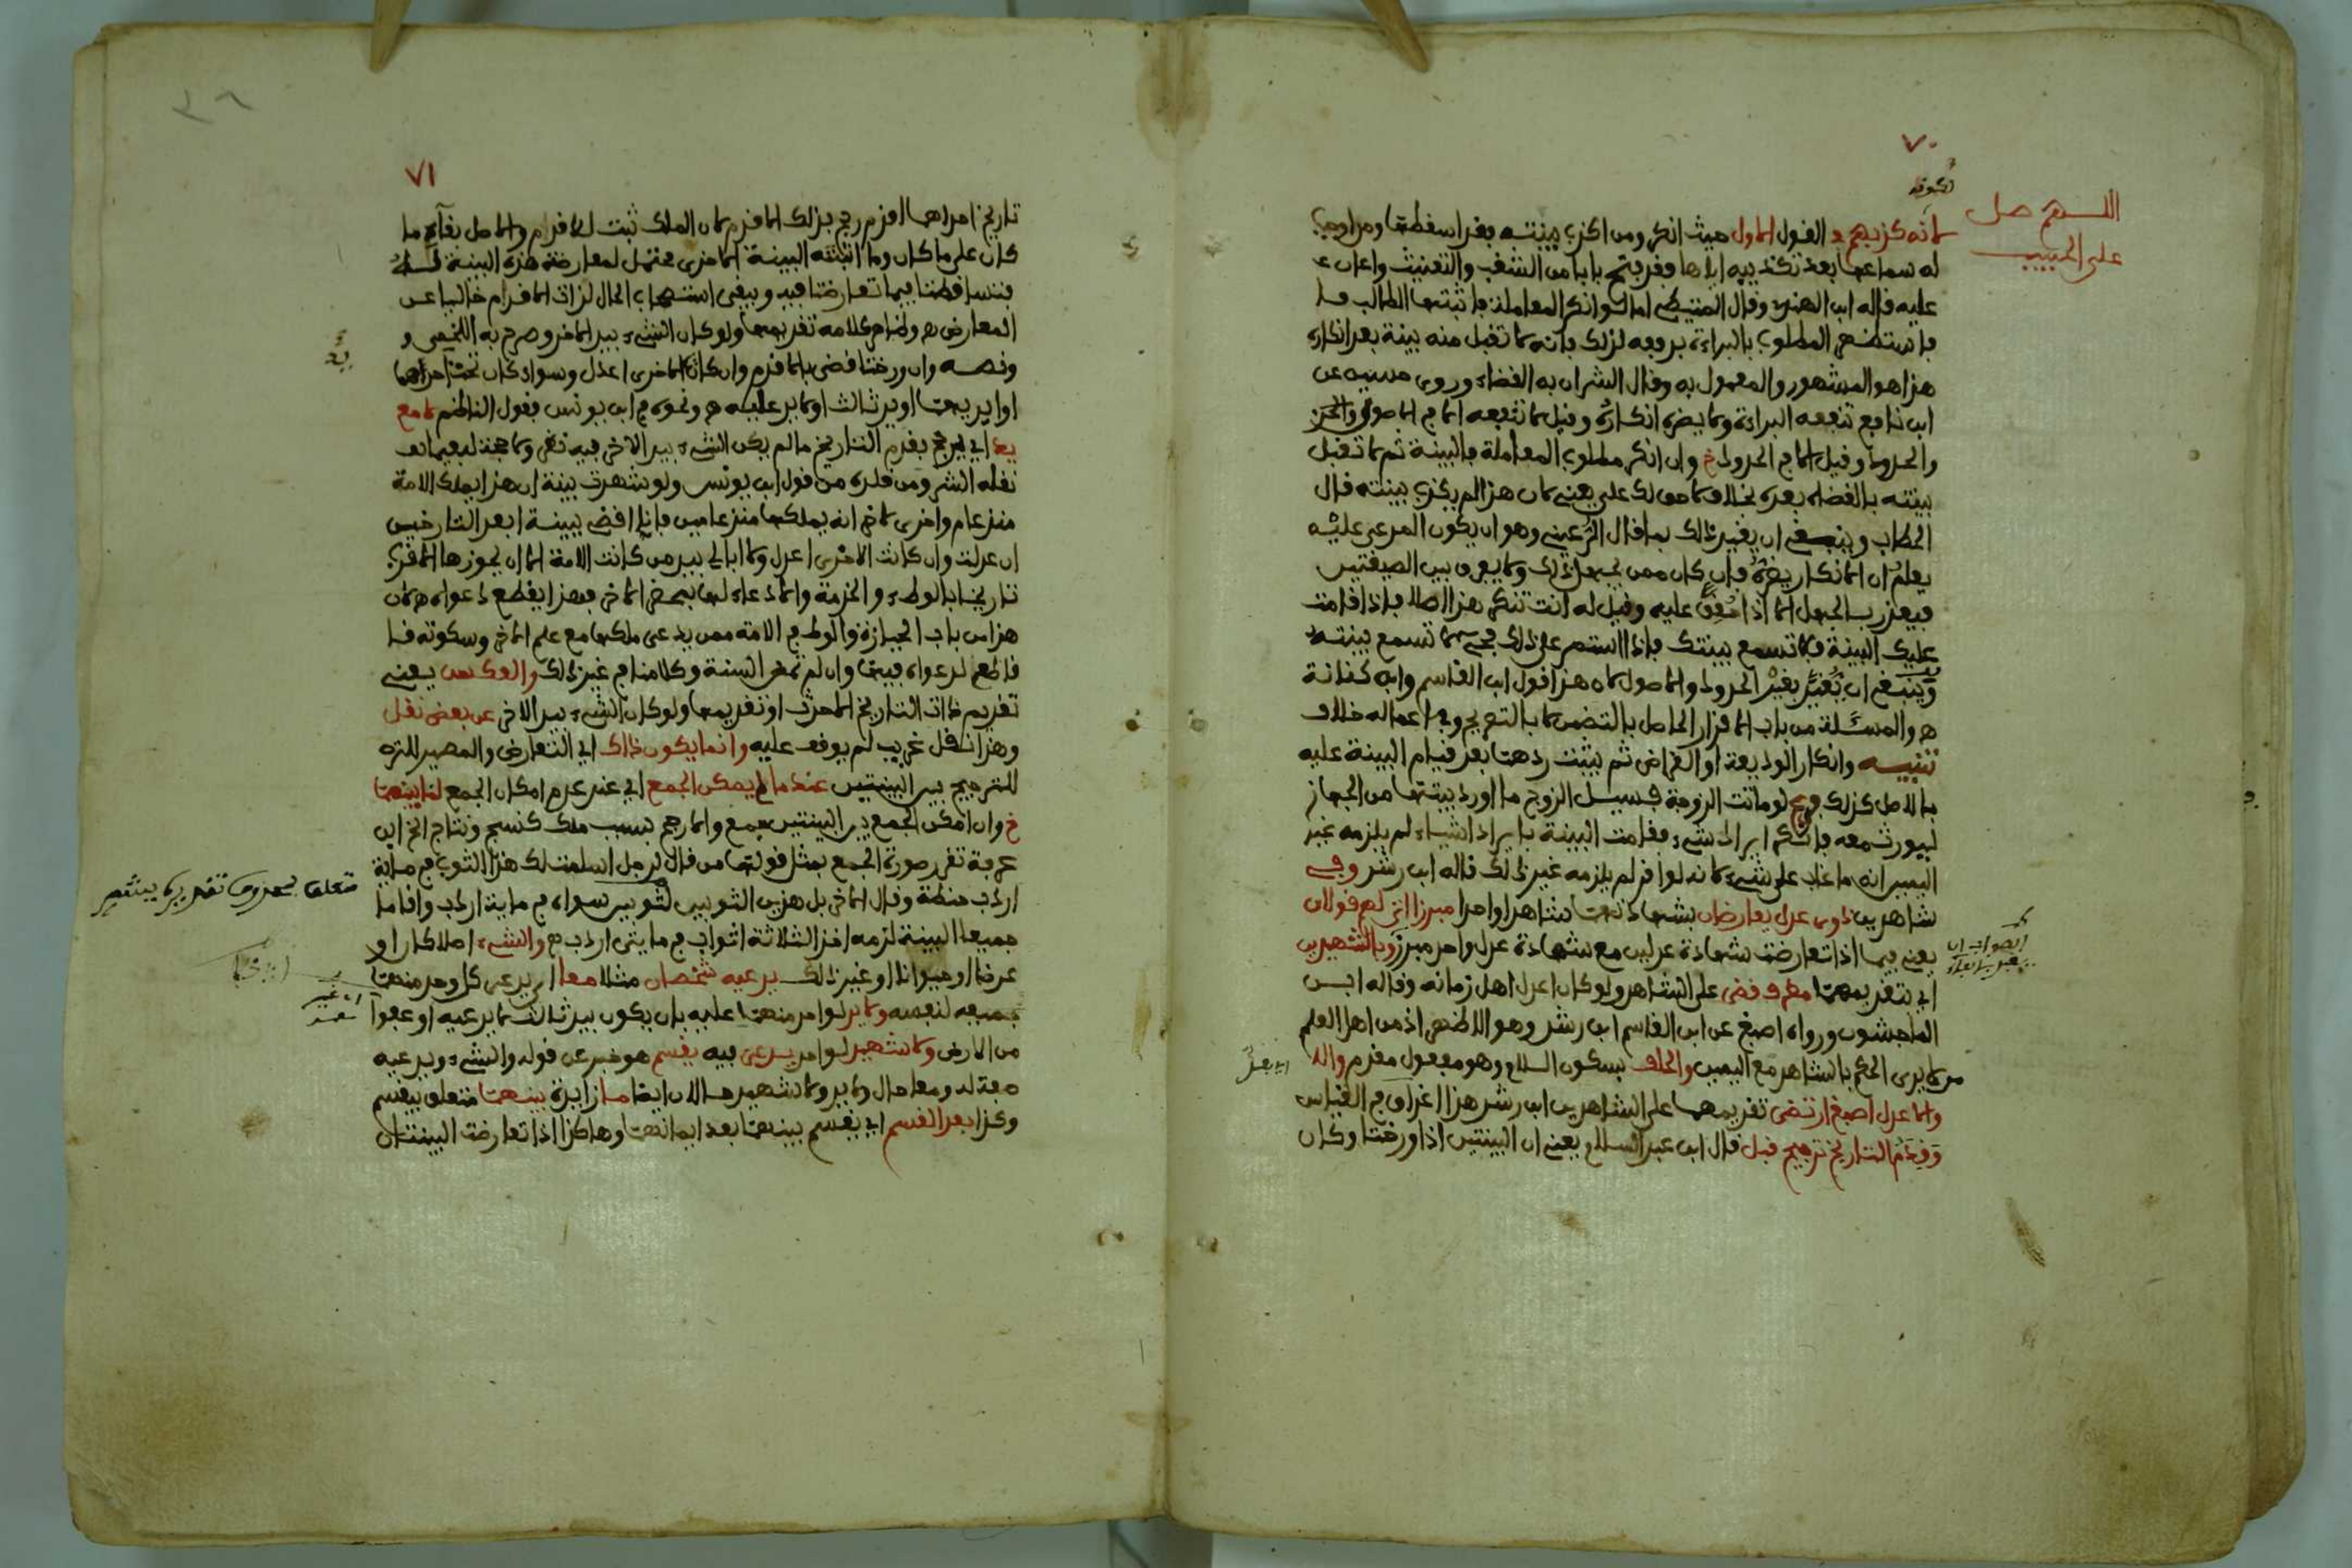 ٧٠
لكونه
اللهم صل
على الحبيب
لانه كذبهم د القول الاول حيث انكر ومن اكذب بينته بقد اسقطها ومراده
له سماعها بعد تكذيبه اياها فقد فتح بابا من الشغب والتعنيت واعان
عليه قاله ابن الهندي وقال المتيطي اما لو انكر المعاملة فاثبتها الطالب
فاستظهر المطلوب بالبراءة برفعه لذلك فانه لا تقبل منه بينة بعد انكاره
هذا هو المشهور والمعمول به وقال الشران به القضاء وروى حسين عن
ابن نافع تنفعه البراءة ولا يضره انكاره وقيل لا تنفعه الا في الاصول
والحدود وقيل الا في الحدود خ وان انكر مطلوب المعاملة فالبينة ثم لا تقبل
بينته بالقضاء بعده بخلاف لا حق لك علي يعني لان هذا لم يكذب بينته قال
الحطاب وينبغي ان يقيد ذلك بما قال الرعيني وهو ان يكون المدعى عليه
يعلم ان الانكار يضره فان كان ممن يجهل ذلك ولا يعرف بين الصيغتين
فيعذر بالجهل الا اذا حقق عليه وقيل له انت تنكر هذا الاصل فاذا قامت
عليك البينة فلا تسمع بينتك فاذا استمر على ذلك لا تسمع بينته
وينبغي ان يقيد بغير الحدود والاصول لان هذا قول ابن القاسم وابن كنانة
ه والمسئلة من باب الاقرار الحاصل بالتضمن لا بالتصريح وفي اعماله خلاف
تنبيه وانكار الوديعة او القراض ثم يثبت ردهما بعد قيام البينة عليه
بالاصل كذلك فرع لو ماتت الزوجة فسئل الزوج ما اورد بيتها من الجهاز
ليورث معه فانكر ايراد شيء فقامت البينة بايراد اشياء لم يلزمه غير
اليمين انه ما غاب على شيء لانه لو اقر لم يلزمه غير ذلك قاله ابن رشد وفي
شاهدين ذوي عدل يعارضان بشهادتهما شاهدا واحدا مبرزا اتى لهم قولان
يعني فيما اذا تعارضت شهادة عدلين مع شهادة عدل واحد مبرز وبالشهيدين
الصواب ان
اي بتقديمهما مطرف قضى على الشاهد ولو كان اعدل اهل زمانه وقاله ابن
الماجشون ورواه اصبغ عن ابن القاسم ابن رشد وهو الاظهر اذ من اهل العلم
من لا يرى الحكم بالشاهد مع اليمين والحلف بسكون اللام وهو مفعول مقدم
والاعدل اصبغ ارتضى تقديمهما على الشاهدين ابن رشد هذا اغراق في القياس
وقدم التاريخ ترجيح قبل قال ابن عبد السلام يعني ان البينتين اذا ورختا وكان
٧١
تاريخ احداهما اقدم رجح بذلك الاقدم لان الملك ثبت للاقدم والاصل بقاء ما
كان على ما كان وما اثبتته البينة الاخرى محتمل لمعارضة هذه البينة له
فتساقطتا فيما تعارضتا فيه وبقي استصحاب الحال لذات الاقدم خاليا عن
المعارض ه وظاهر كلامه تقديمها ولو كان الشيء بيد الاخر وصرح به اللخمي و
ونصه وان ورختا قضى بالاقدم وان كانت الاخرى اعدل وسواء كان تحت احداهما
او ايديهما او يد ثالث او لا يد عليه ه ونحوه في ابن يونس فقول الناظم لا مع
يد اي يرجح بقدم التاريخ ما لم يكن الشيء بيد الاخر فيه نظر ولا حجة له فيما
نقله الشرومن قلده من قول ابن يونس ولو شهدت بينة ان هذا يملك الامة
منذ عام واخرى لاخر انه يملكها منذ عامين فانا اقضي ببينة ابعد التاريخين
ان عدلت وان كانت الاخرى اعدل ولا ابالي بيد من كانت الامة الا ان يحوزها الاقرب
تاريخا بالوطء والخدمة والادعاء لها بمحضر الاخر فهذا يقطع دعواه ه لان
هذا من باب الحيازة والوطء في الامة ممن يدعي ملكها مع علم الاخر وسكوته
قاطع لدعواه فيها وان لم تمض السنة وكلامنا في غير ذلك والعكس يعني
تقديم ذات التاريخ الاحدث او تقديمها ولو كان الشيء بيد الاخر عن بعض نقل
وهذا نقل غريب لم يوقف عليه وانما يكون ذاك اي التعارض والمصير للتره
للترجيح بين البينتين عند ما لا يمكن الجمع اي عند عدم امكان الجمع لنا بينهما
خ وان امكن الجمع بين البينتين جمع والا رجح بسبب ملك كنسج ونتاج الخ ابن
عرفة تقرر صورة الجمع بمثل قولها من قال لرجل اسلمت لك هذا الثوب في مائة
متعلق بمحذوف تقديره
اردب حنطة وقال الاخر بل هذين الثوبين لثوبين سواه في مائة اردب واقاما
جميعا البينة لزمه اخذ الثلاثة اثواب في مايتي اردب ه والشيء اصلا كان او
عرضا او حيوانا او غير ذلك يدعيه شخصان مثلا معا اي يدعي كل واحد منهما
جميعه لنفسه ولا يد لواحد منهما عليه بان يكون بيد ثالث لا يدعيه او عفوا
من الارض ولا شهيد لواحد يدعي فيه يقسم هو خبر عن قوله والشيء ويدعيه
صفة له ومعا حال ولا يد ولا شهيد حالان ايضا ما زائدة بينهما متعلق بيقسم
وكذا بعد القسم اي يقسم بينهما بعد ايمانهما وهاكذا اذا تعارضت البينتان